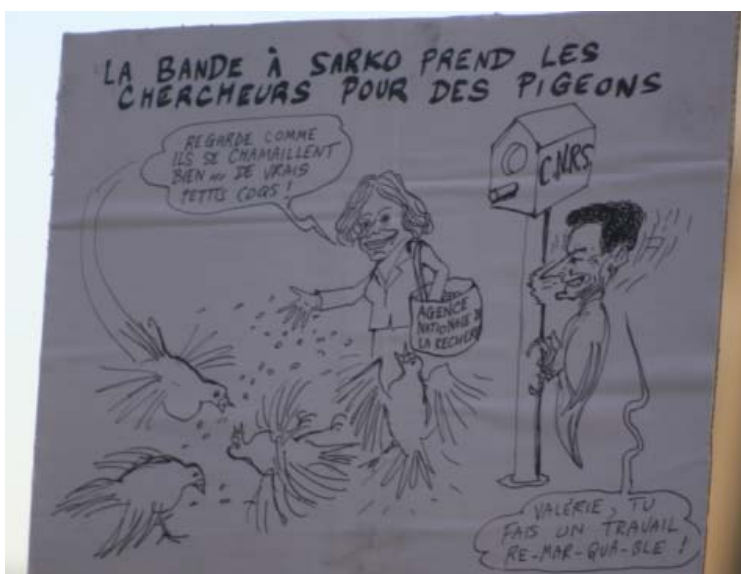 LA BANDE À SARKO PREND LES
CHERCHEURS POUR DES PIGEONS
REGARDE COMME
ILS SE CHAMAILLENT
BIEN ... DE VRAIS
PETITS COQS !
C.N.R.S.
AGENCE
NATIONALE DE
LA RECHERCHE
VALÉRIE, TU
FAIS UN TRAVAIL
RE-MAR-QUA-BLE !